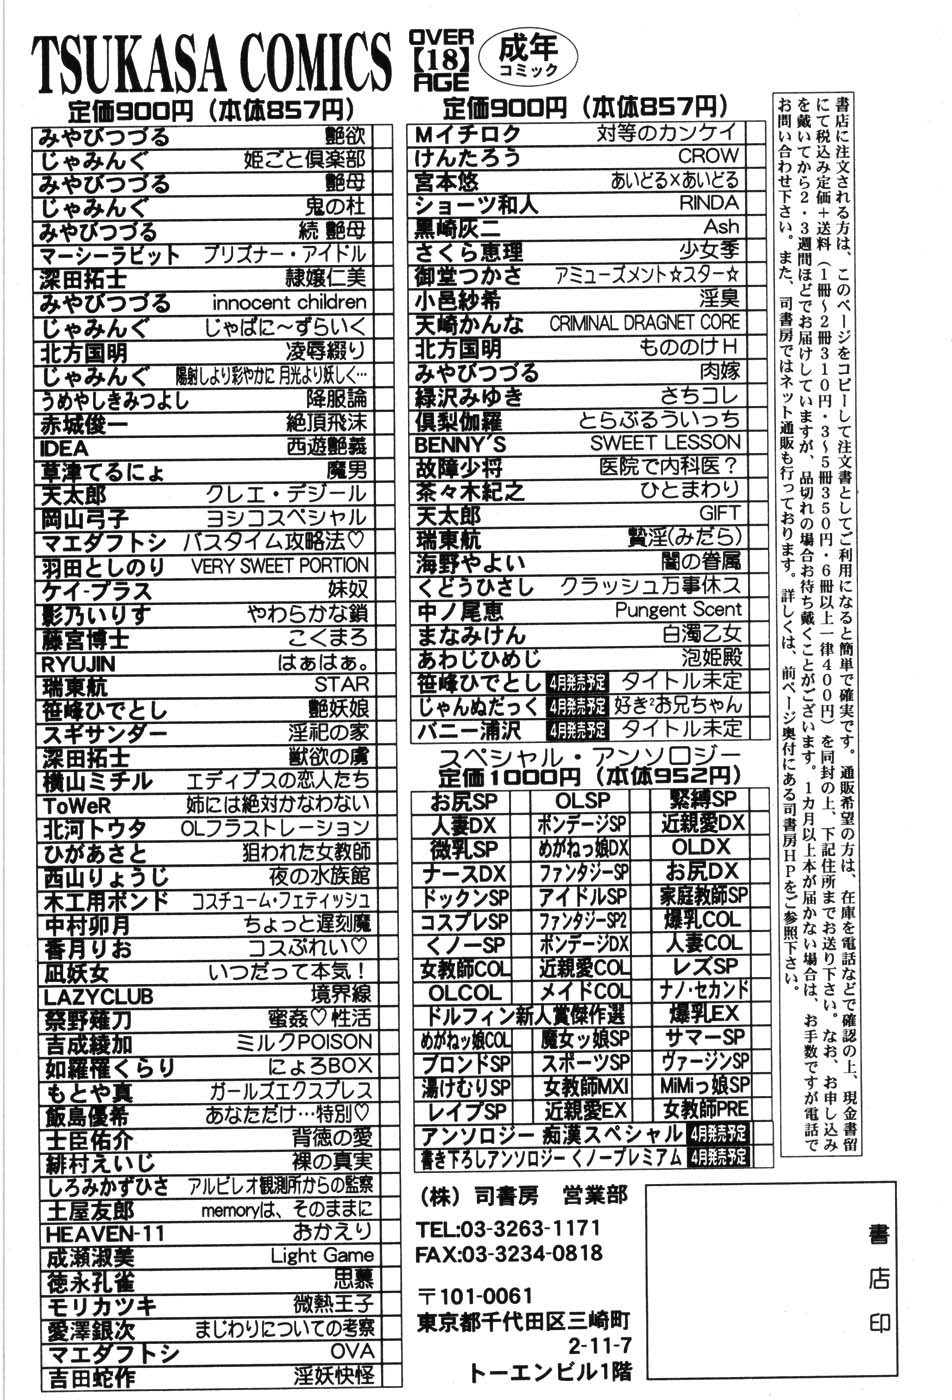 TSUKASA COMICS
OVER
【18】
AGE
成年
コミック
定価900円（本体857円）
みやびつづる 艶欲
じゃみんぐ 姫ごと倶楽部
みやびつづる 艶母
じゃみんぐ 鬼の杜
みやびつづる 続 艶母
マーシーラビット プリズナー・アイドル
深田拓士 隷嬢仁美
みやびつづる innocent children
じゃみんぐ じゃぱに〜ずらいく
北方国明 凌辱綴り
じゃみんぐ 陽射しより彩やかに 月光より妖しく…
うめやしきみつよし 降服論
赤城俊一 絶頂飛沫
IDEA 西遊艶義
草津てるにょ 魔男
天太郎 クレエ・デジール
岡山弓子 ヨシコスペシャル
マエダフトシ バスタイム攻略法♡
羽田としのり VERY SWEET PORTION
ケイ-プラス 妹奴
影乃いりす やわらかな鎖
藤宮博士 こくまろ
RYUJIN はぁはぁ。
瑞東航 STAR
笹峰ひでとし 艶妖娘
スギサンダー 淫祀の家
深田拓士 獣欲の虜
横山ミチル エディプスの恋人たち
ToWeR 姉には絶対かなわない
北河トウタ OLフラストレーション
ひがあさと 狙われた女教師
西山りょうじ 夜の水族館
木工用ボンド コスチューム・フェティッシュ
中村卯月 ちょっと遅刻魔
香月りお コスぷれい♡
凪妖女 いつだって本気！
LAZYCLUB 境界線
祭野薙刀 蜜姦♡性活
吉成綾加 ミルクPOISON
如羅罹くらり にょろBOX
もとや真 ガールズエクスプレス
飯島優希 あなただけ…特別♡
士臣佑介 背徳の愛
緋村えいじ 裸の真実
しろみかずひさ アルビレオ観測所からの監察
土屋友郎 memoryは、そのままに
HEAVEN-11 おかえり
成瀬淑美 Light Game
徳永孔雀 思慕
モリカツキ 微熱王子
愛澤銀次 まじわりについての考察
マエダフトシ OVA
吉田蛇作 淫妖快怪
定価900円（本体857円）
Mイチロク 対等のカンケイ
けんたろう CROW
宮本悠 あいどる×あいどる
ショーツ和人 RINDA
黒崎灰二 Ash
さくら恵理 少女季
御堂つかさ アミューズメント☆スター☆
小邑紗希 淫臭
天崎かんな CRIMINAL DRAGNET CORE
北方国明 もののけH
みやびつづる 肉嫁
緑沢みゆき さちコレ
倶梨伽羅 とらぶるういっち
BENNY'S SWEET LESSON
故障少将 医院で内科医？
茶々木紀之 ひとまわり
天太郎 GIFT
瑞東航 贄淫(みだら)
海野やよい 闇の眷属
くどうひさし クラッシュ万事休ス
中ノ尾恵 Pungent Scent
まなみけん 白濁乙女
あわじひめじ 泡姫殿
笹峰ひでとし 4月発売予定 タイトル未定
じゃんぬだっく 4月発売予定 好き²お兄ちゃん
バニー浦沢 4月発売予定 タイトル未定
スペシャル・アンソロジー
定価1000円（本体952円）
お尻SP OLSP 緊縛SP
人妻DX ボンデージSP 近親愛DX
微乳SP めがねっ娘DX OLDX
ナースDX ファンタジーSP お尻DX
ドックンSP アイドルSP 家庭教師SP
コスプレSP ファンタジーSP2 爆乳COL
くノーSP ボンデージDX 人妻COL
女教師COL 近親愛COL レズSP
OLCOL メイドCOL ナノ・セカンド
ドルフィン新人賞傑作選 爆乳EX
めがねッ娘COL 魔女ッ娘SP サマーSP
ブロンドSP スポーツSP ヴァージンSP
湯けむりSP 女教師MXI MiMiっ娘SP
レイプSP 近親愛EX 女教師PRE
アンソロジー 痴漢スペシャル 4月発売予定
書き下ろしアンソロジー くノープレミアム 4月発売予定
書店に注文される方は、このページをコピーして注文書としてご利用になると簡単で確実です。通販希望の方は、在庫を電話などで確認の上、現金書留
にて税込み定価＋送料（1冊〜2冊310円・3〜5冊350円・6冊以上一律400円）を同封の上、下記住所までお送り下さい。なお、お申し込み
を戴いてから2・3週間ほどでお届けしていますが、品切れの場合お待ち戴くことがございます。1カ月以上本が届かない場合は、お手数ですが電話で
お問い合わせ下さい。また、司書房ではネット通販も行っております。詳しくは、前ページ奥付にある司書房HPをご参照下さい。
（株）司書房 営業部
TEL:03-3263-1171
FAX:03-3234-0818
〒101-0061
東京都千代田区三崎町
2-11-7
トーエンビル1階
書店印